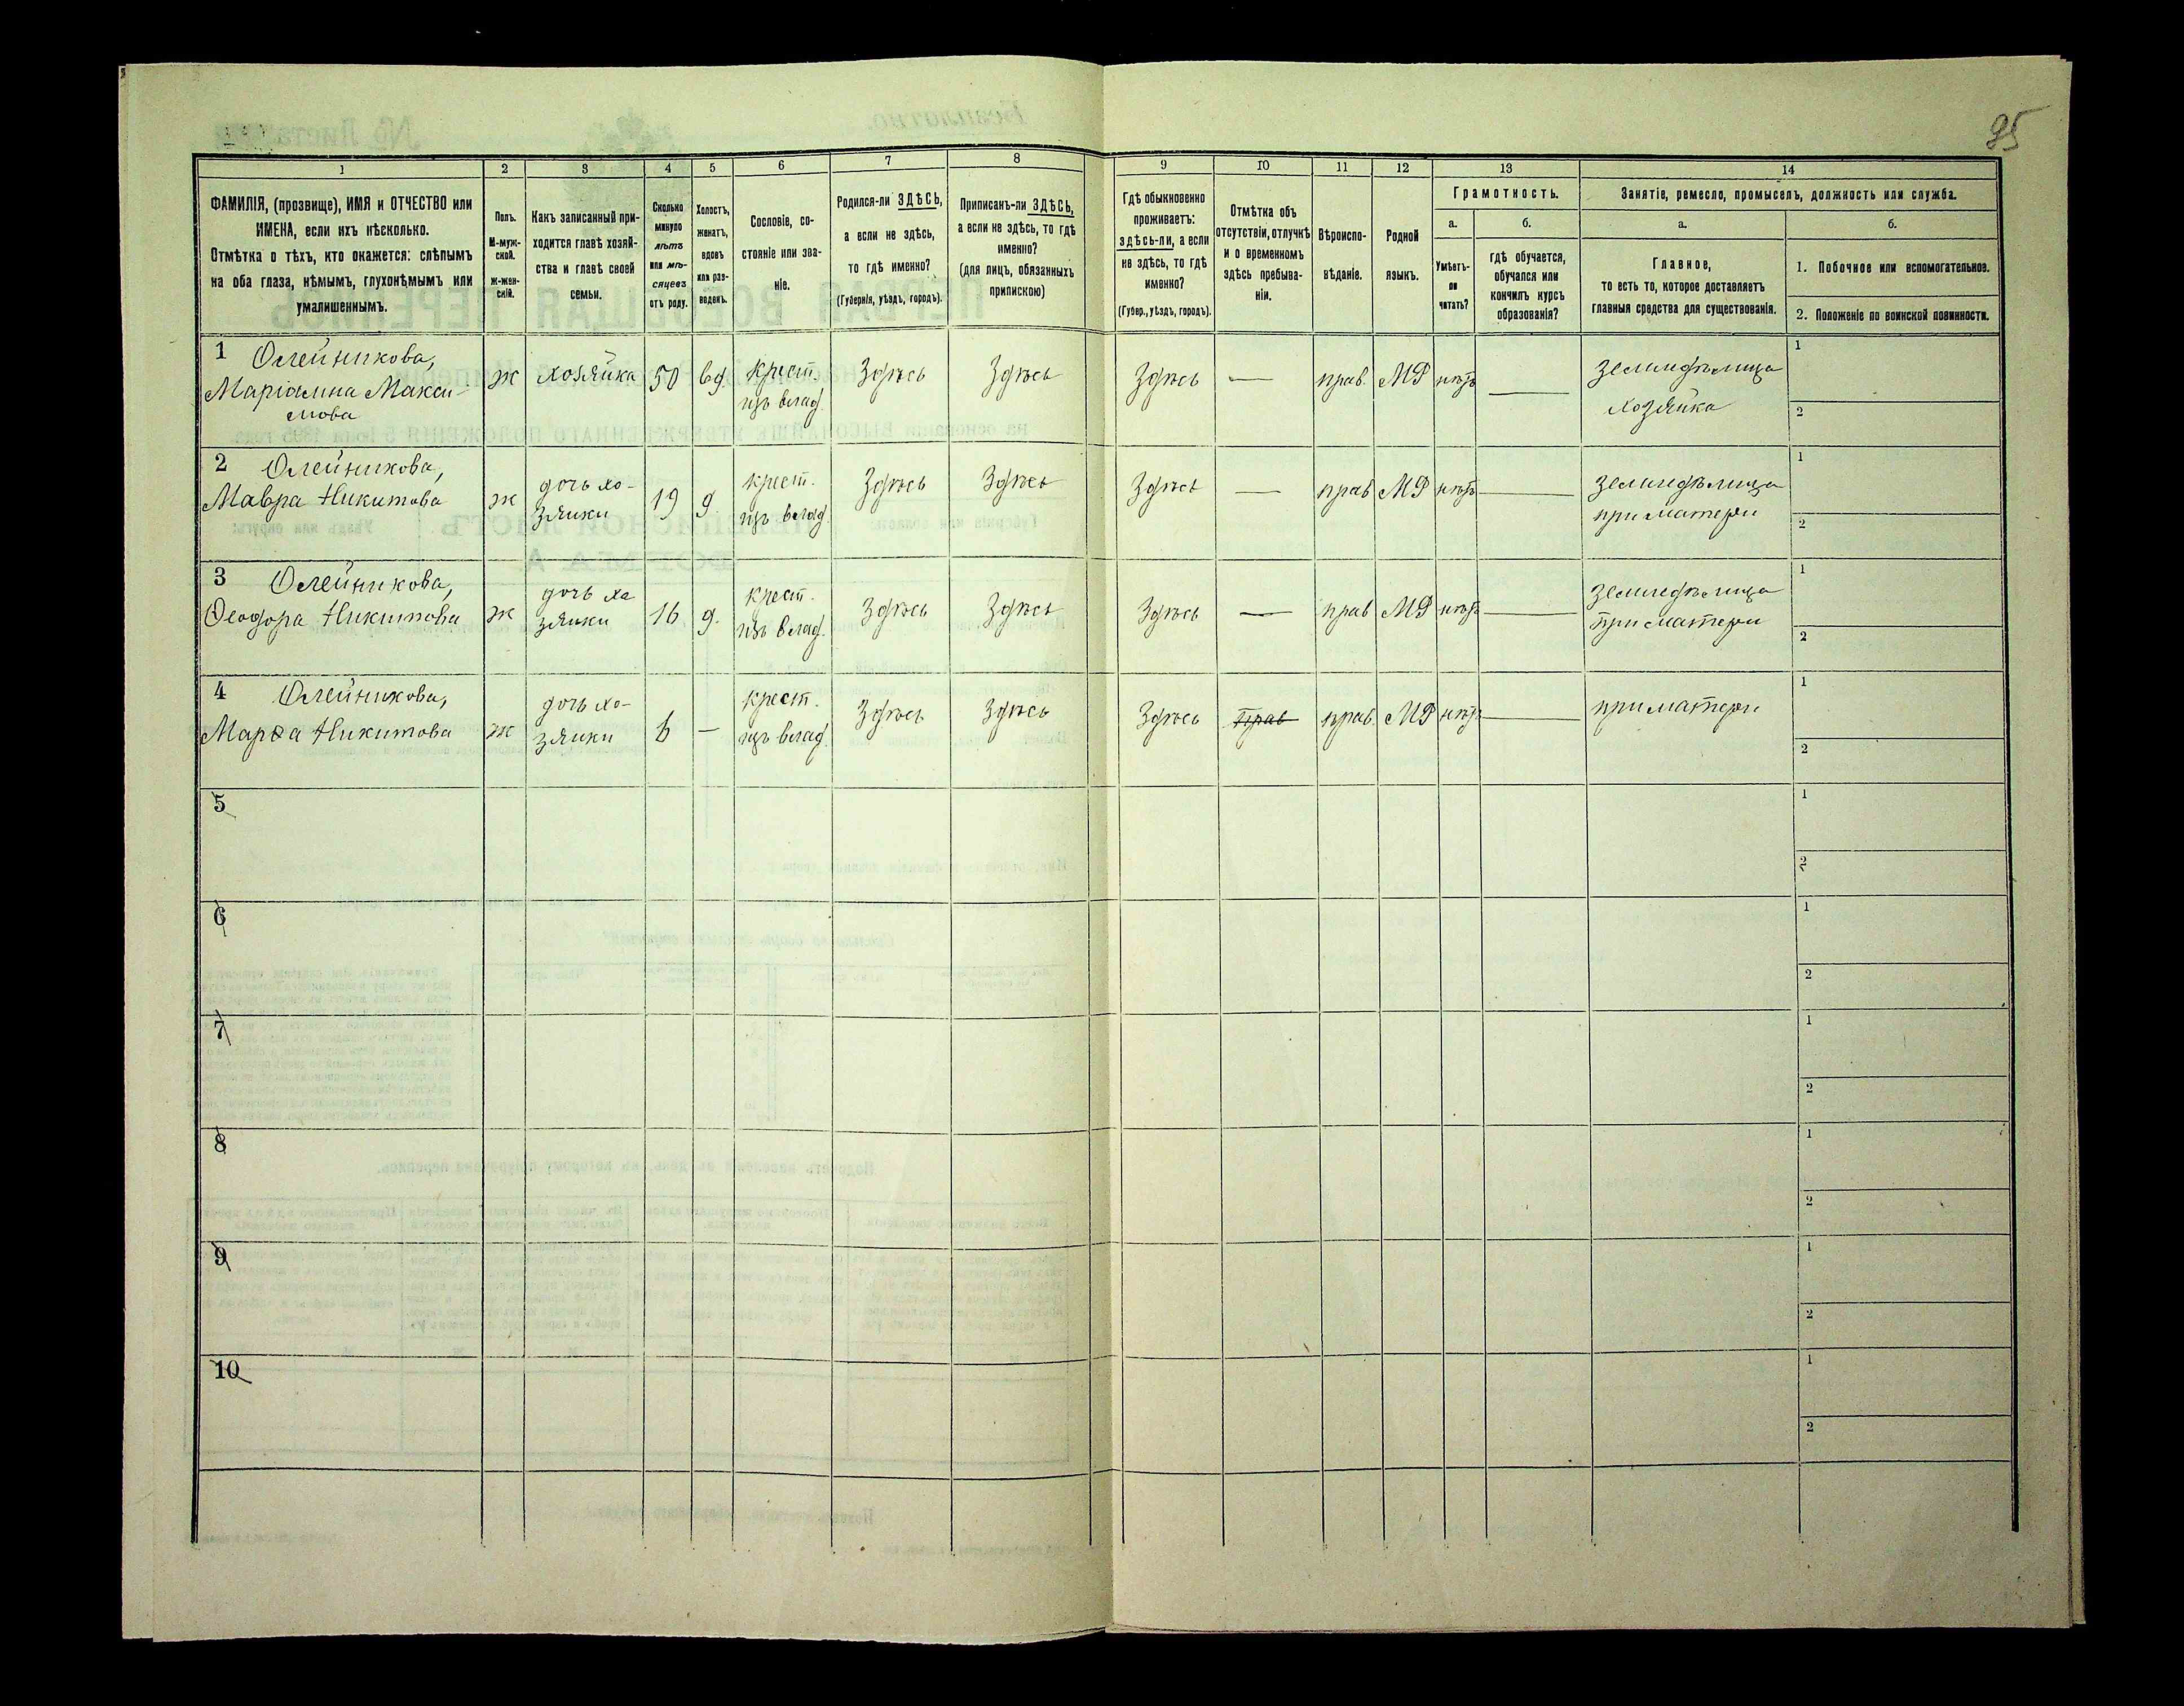 95
1
2
3
4
5
6
7
8
9
10
11
12
13
14
ФАМИЛІЯ, (прозвище), ИМЯ и ОТЧЕСТВО или
ИМЕНА, если ихъ нѣсколько.
Отмѣтка о тѣхъ, кто окажется: слѣпымъ
на оба глаза, нѣмымъ, глухонѣмымъ или
умалишеннымъ.
Полъ.
М-муж-
ской.
ж-жен-
скій.
Какъ записанный при-
ходится главѣ хозяй-
ства и главѣ своей
семьи.
Сколько
минуло
лѣтъ
или мѣ-
сяцевъ
отъ роду.
Холостъ,
женатъ,
вдовъ
или раз-
веденъ.
Сословіе, со-
стояніе или зва-
ніе.
Родился-ли ЗДѢСЬ,
а если не здѣсь,
то гдѣ именно?
(Губернія, уѣздъ, городъ).
Приписанъ-ли ЗДѢСЬ,
а если не здѣсь, то гдѣ
именно?
(для лицъ, обязанныхъ
припискою)
Гдѣ обыкновенно
проживаетъ:
здѣсь-ли, а если
не здѣсь, то гдѣ
именно?
(Губер., уѣздъ, городъ).
Отмѣтка объ
отсутствіи, отлучкѣ
и о временномъ
здѣсь пребыва-
ніи.
Вѣроиспо-
вѣданіе.
Родной
языкъ.
Грамотность.
а.
Умѣетъ-
ли
читать?
б.
гдѣ обучается,
обучался или
кончилъ курсъ
образованія?
Занятіе, ремесло, промыселъ, должность или служба.
а.
Главное,
то есть то, которое доставляетъ
главныя средства для существованія.
б.
1. Побочное или вспомогательное.
2. Положеніе по воинской повинности.
1 Олейникова,
Маріамна Макси-
мова
ж
хозяйка
50
вд.
крест.
изъ влад.
Здѣсь
Здѣсь
Здѣсь
—
прав.
МР
нѣтъ
—
земледѣлица
хозяйка
1
2
2 Олейникова,
Мавра Никитова
ж
дочь хо-
зяйки
19
д
крест.
изъ влад.
Здѣсь
Здѣсь
Здѣсь
—
прав
МР
нѣтъ
—
земледѣлица
при матери
1
2
3 Олейникова,
Ѳеодора Никитова
ж
дочь хо
зяйки
16
д.
крест.
изъ влад.
Здѣсь
Здѣсь
Здѣсь
—
прав
МР
нѣтъ
—
земледѣлица
при матери
1
2
4 Олейникова,
Марѳа Никитова
ж
дочь хо-
зяйки
6
—
крест.
изъ влад.
Здѣсь
Здѣсь
Здѣсь
прав
прав.
МР
нѣтъ
—
при матери
1
2
5
1
2
6
1
2
7
1
2
8
1
2
9
1
2
10
1
2